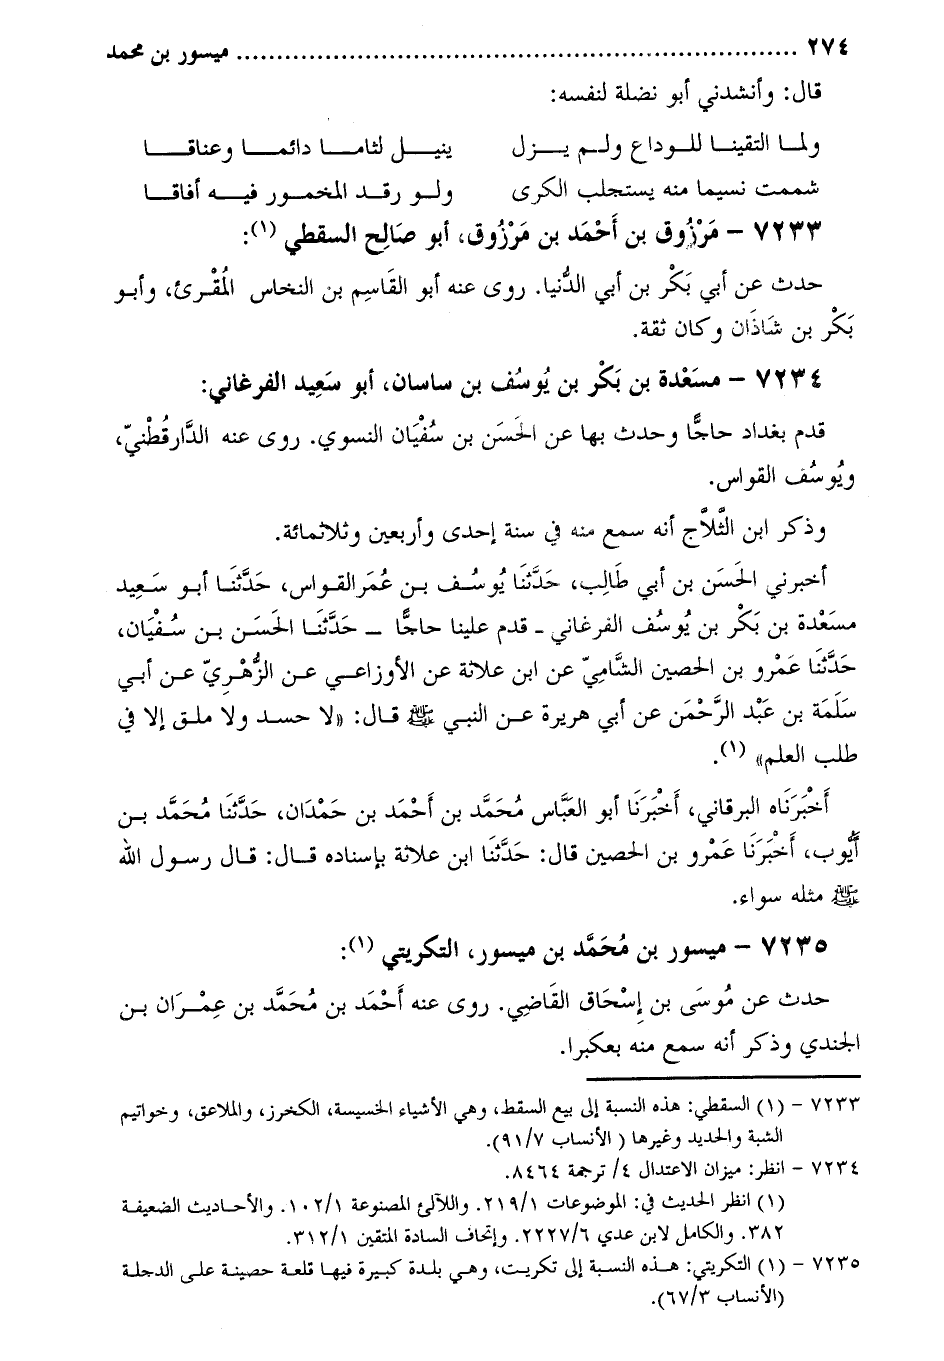 ٢٧٤ ........................................ ميسور بن محمد
قال: وأنشدني أبو نضلة لنفسه:
ولمـا التقينـا للـوداع ولـم يـزل ينيـل لثامـا دائمـا وعناقـا
شممت نسيما منه يستجلب الكرى ولـو رقـد المخمـور فيـه أفاقـا
٧٢٣٣ – مَرْزُوق بن أَحْمَد بن مَرْزُوق، أبو صَالِح السقطي (١):
حدث عن أبي بَكْر بن أبي الدُّنيا. روى عنه أبو القَاسِم بن النخاس المُقْرئ، وأبو
بَكْر بن شَاذَان وكان ثقة.
٧٢٣٤ – مسَعْدة بن بَكْر بن يُوسُف بن ساسان، أبو سَعِيد الفرغاني:
قدم بغداد حاجًّا وحدث بها عن الحَسَن بن سُفْيَان النسوي. روى عنه الدَّارقُطْنيّ،
ويُوسُف القواس.
وذكر ابن الثَّلاَّج أنه سمع منه في سنة إحدى وأربعين وثلاثمائة.
أخبرني الحَسَن بن أبي طَالِب، حَدَّثَنَا يُوسُف بن عُمَر القواس، حَدَّثَنَا أبو سَعِيد
مسَعْدة بن بَكْر بن يُوسُف الفرغاني ـ قدم علينا حاجًّا ـ حَدَّثَنَا الحَسَن بن سُفْيَان،
حَدَّثَنَا عَمْرو بن الحصين الشَّامِيّ عن ابن علاثة عن الأوزاعي عن الزُّهْرِيّ عن أبي
سَلَمَة بن عَبْد الرَّحْمَن عن أبي هريرة عن النبي ﷺ قال: «لا حسد ولا ملق إلا في
طلب العلم» (١).
أَخْبَرَنَاه البرقاني، أَخْبَرَنَا أبو العَبَّاس مُحَمَّد بن أَحْمَد بن حَمْدَان، حَدَّثَنَا مُحَمَّد بن
أَيُّوب، أَخْبَرَنَا عَمْرو بن الحصين قال: حَدَّثَنَا ابن علاثة بإسناده قال: قال رسول الله
ﷺ مثله سواء.
٧٢٣٥ – ميسور بن مُحَمَّد بن ميسور، التكريتي (١):
حدث عن مُوسَى بن إِسْحَاق القَاضِي. روى عنه أَحْمَد بن مُحَمَّد بن عِمْرَان بن
الجندي وذكر أنه سمع منه بعكبرا.
٧٢٣٣ – (١) السقطي: هذه النسبة إلى بيع السقط، وهي الأشياء الخسيسة، الكخرز، والملاعق، وخواتيم
الشبة والحديد وغيرها ( الأنساب ٩١/٧).
٧٢٣٤ – انظر: ميزان الاعتدال ٤/ ترجمة ٨٤٦٤.
(١) انظر الحديث في: الموضوعات ٢١٩/١. واللآلئ المصنوعة ١٠٢/١. والأحاديث الضعيفة
٣٨٢. والكامل لابن عدي ٢٢٢٧/٦. وإتحاف السادة المتقين ٣١٢/١.
٧٢٣٥ – (١) التكريتي: هذه النسبة إلى تكريت، وهي بلدة كبيرة فيها قلعة حصينة على الدجلة
(الأنساب ٦٧/٣).